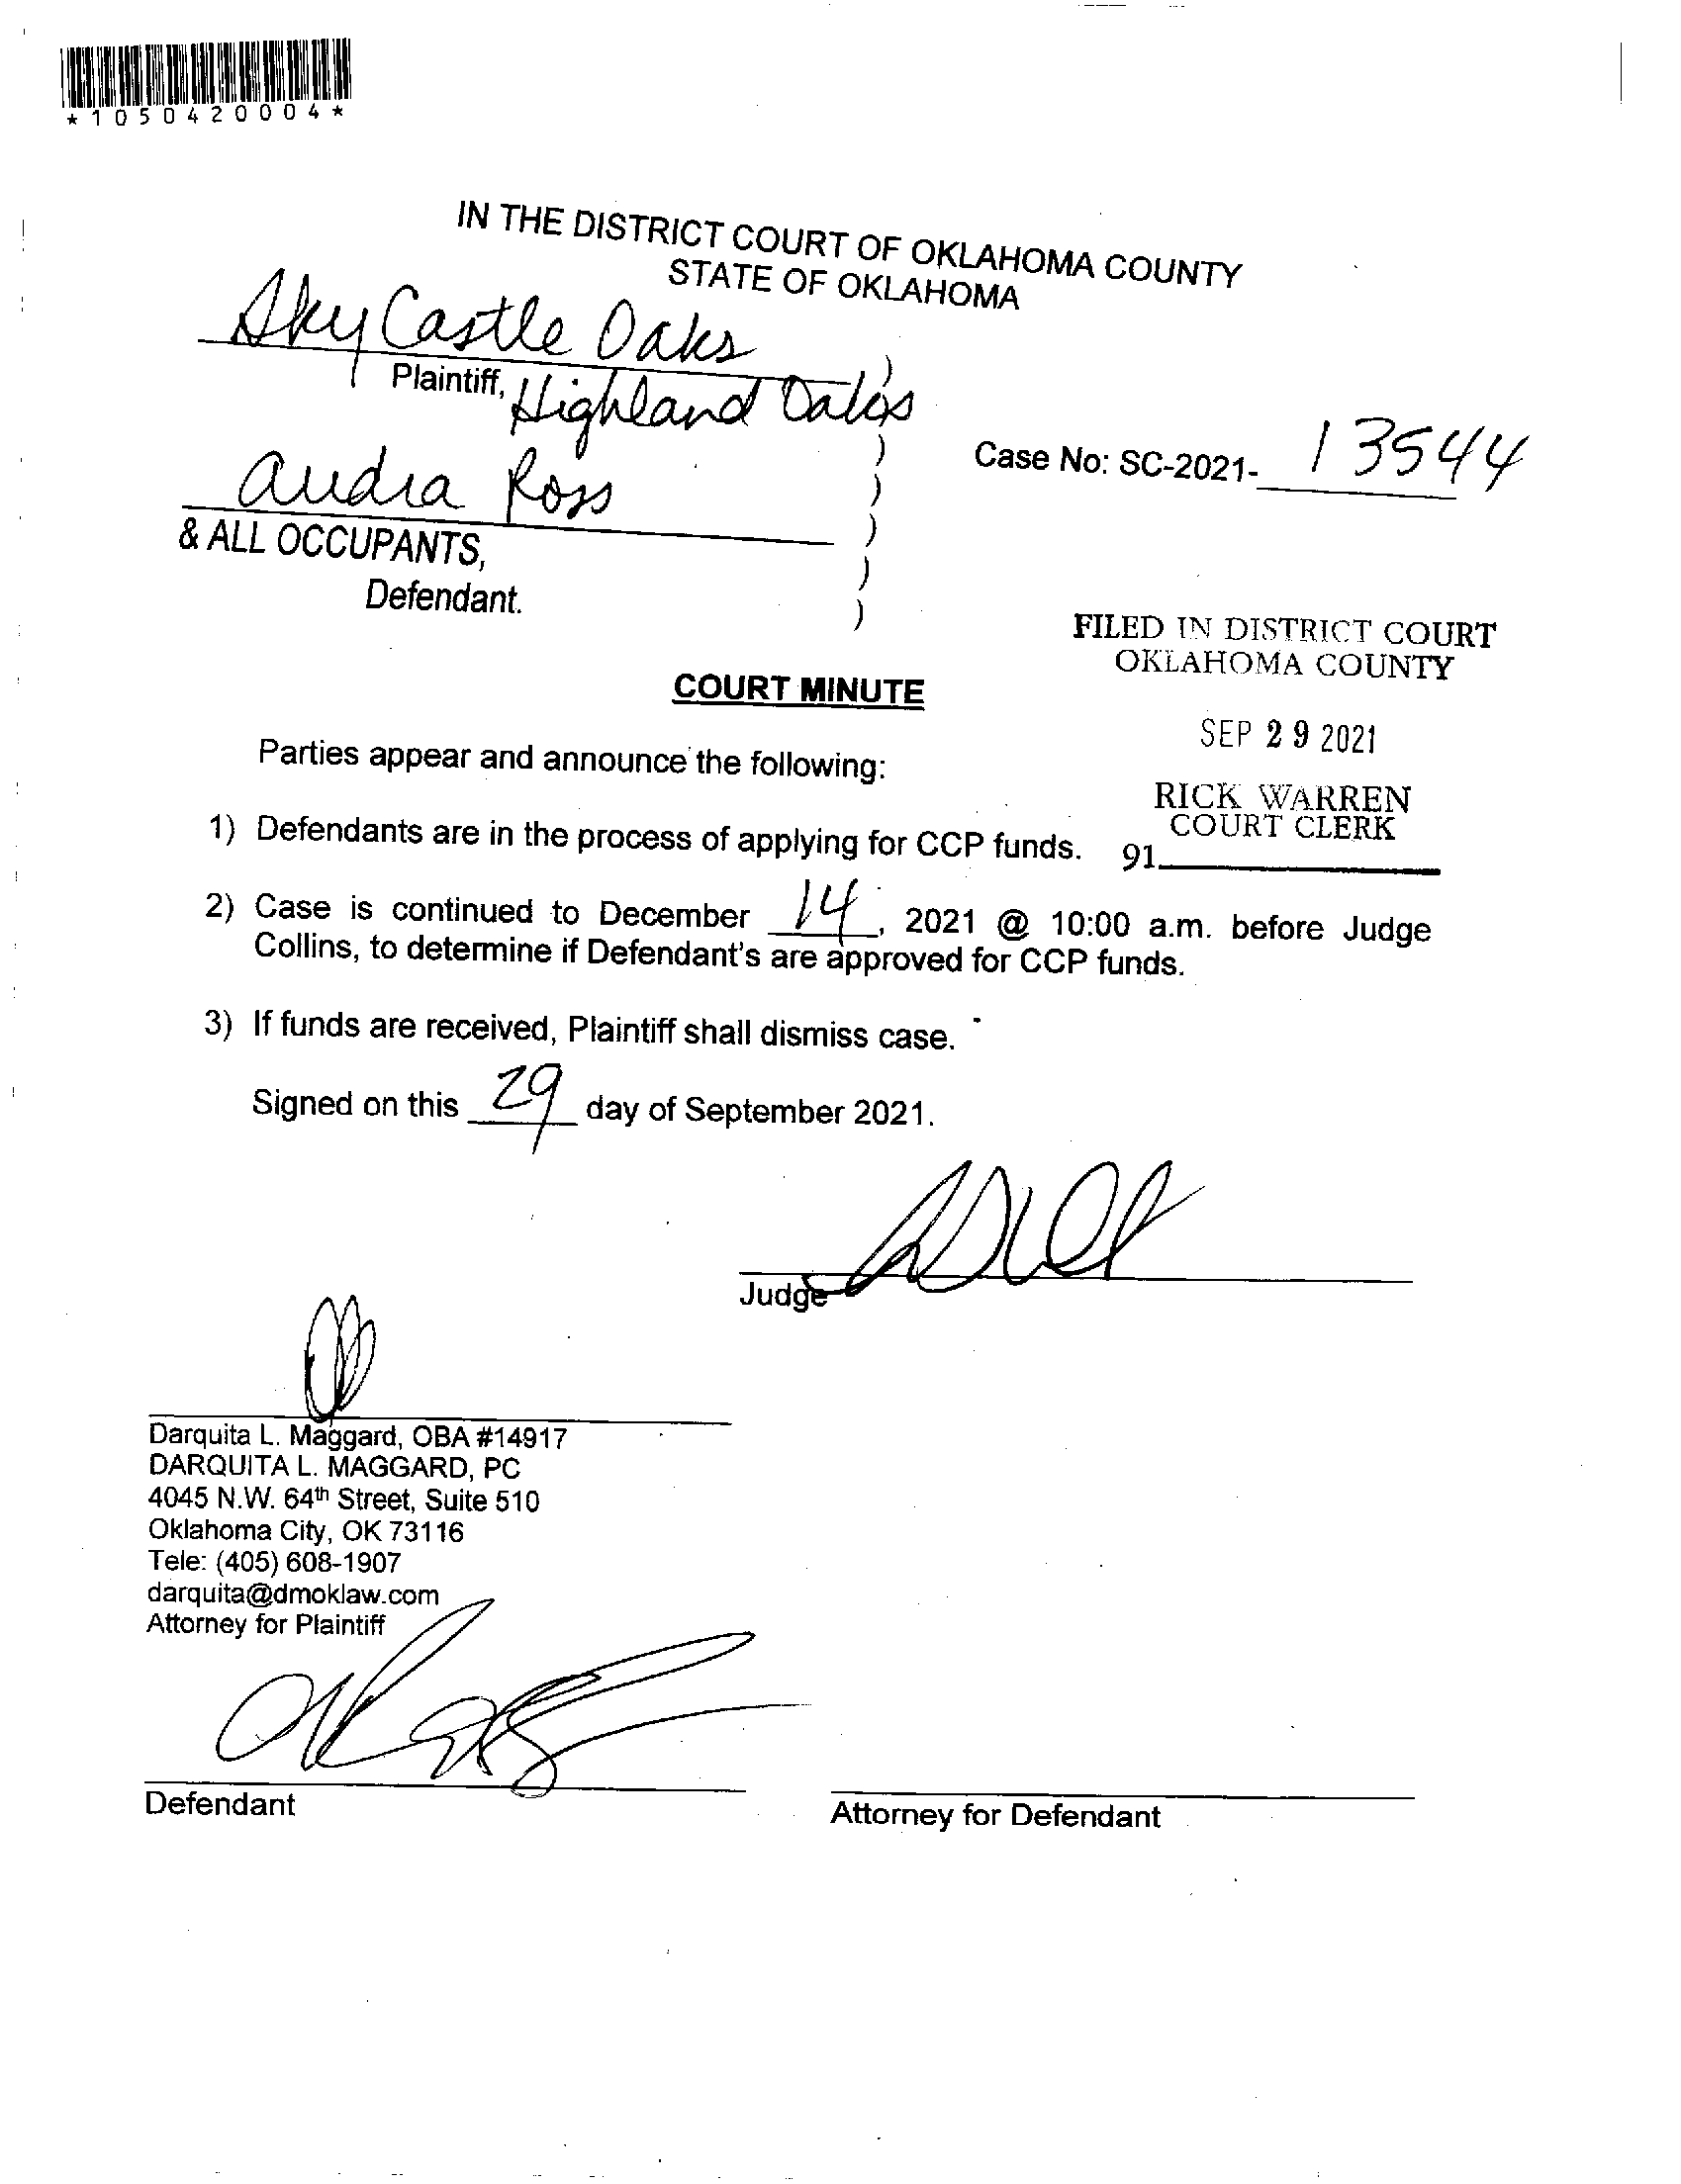 *1050420004*
IN THE DISTRICT COURT OF OKLAHOMA COUNTY
STATE OF OKLAHOMA
Sky Castle Oaks
Plaintiff, Highland Oaks
)
Audra Ross
)
Case No: SC-2021- 13544
)
& ALL OCCUPANTS,
)
)
Defendant.
)
FILED IN DISTRICT COURT
OKLAHOMA COUNTY
COURT MINUTE
SEP 29 2021
Parties appear and announce the following:
RICK WARREN
COURT CLERK
1) Defendants are in the process of applying for CCP funds.
91
2) Case is continued to December 14, 2021 @ 10:00 a.m. before Judge
Collins, to determine if Defendant's are approved for CCP funds.
3) If funds are received, Plaintiff shall dismiss case.
Signed on this 29 day of September 2021.
Judge
Darquita L. Maggard, OBA #14917
DARQUITA L. MAGGARD, PC
4045 N.W. 64th Street, Suite 510
Oklahoma City, OK 73116
Tele: (405) 608-1907
darquita@dmoklaw.com
Attorney for Plaintiff
Defendant
Attorney for Defendant